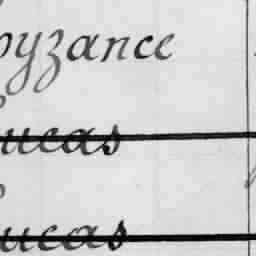 byzance
ucas
ucas